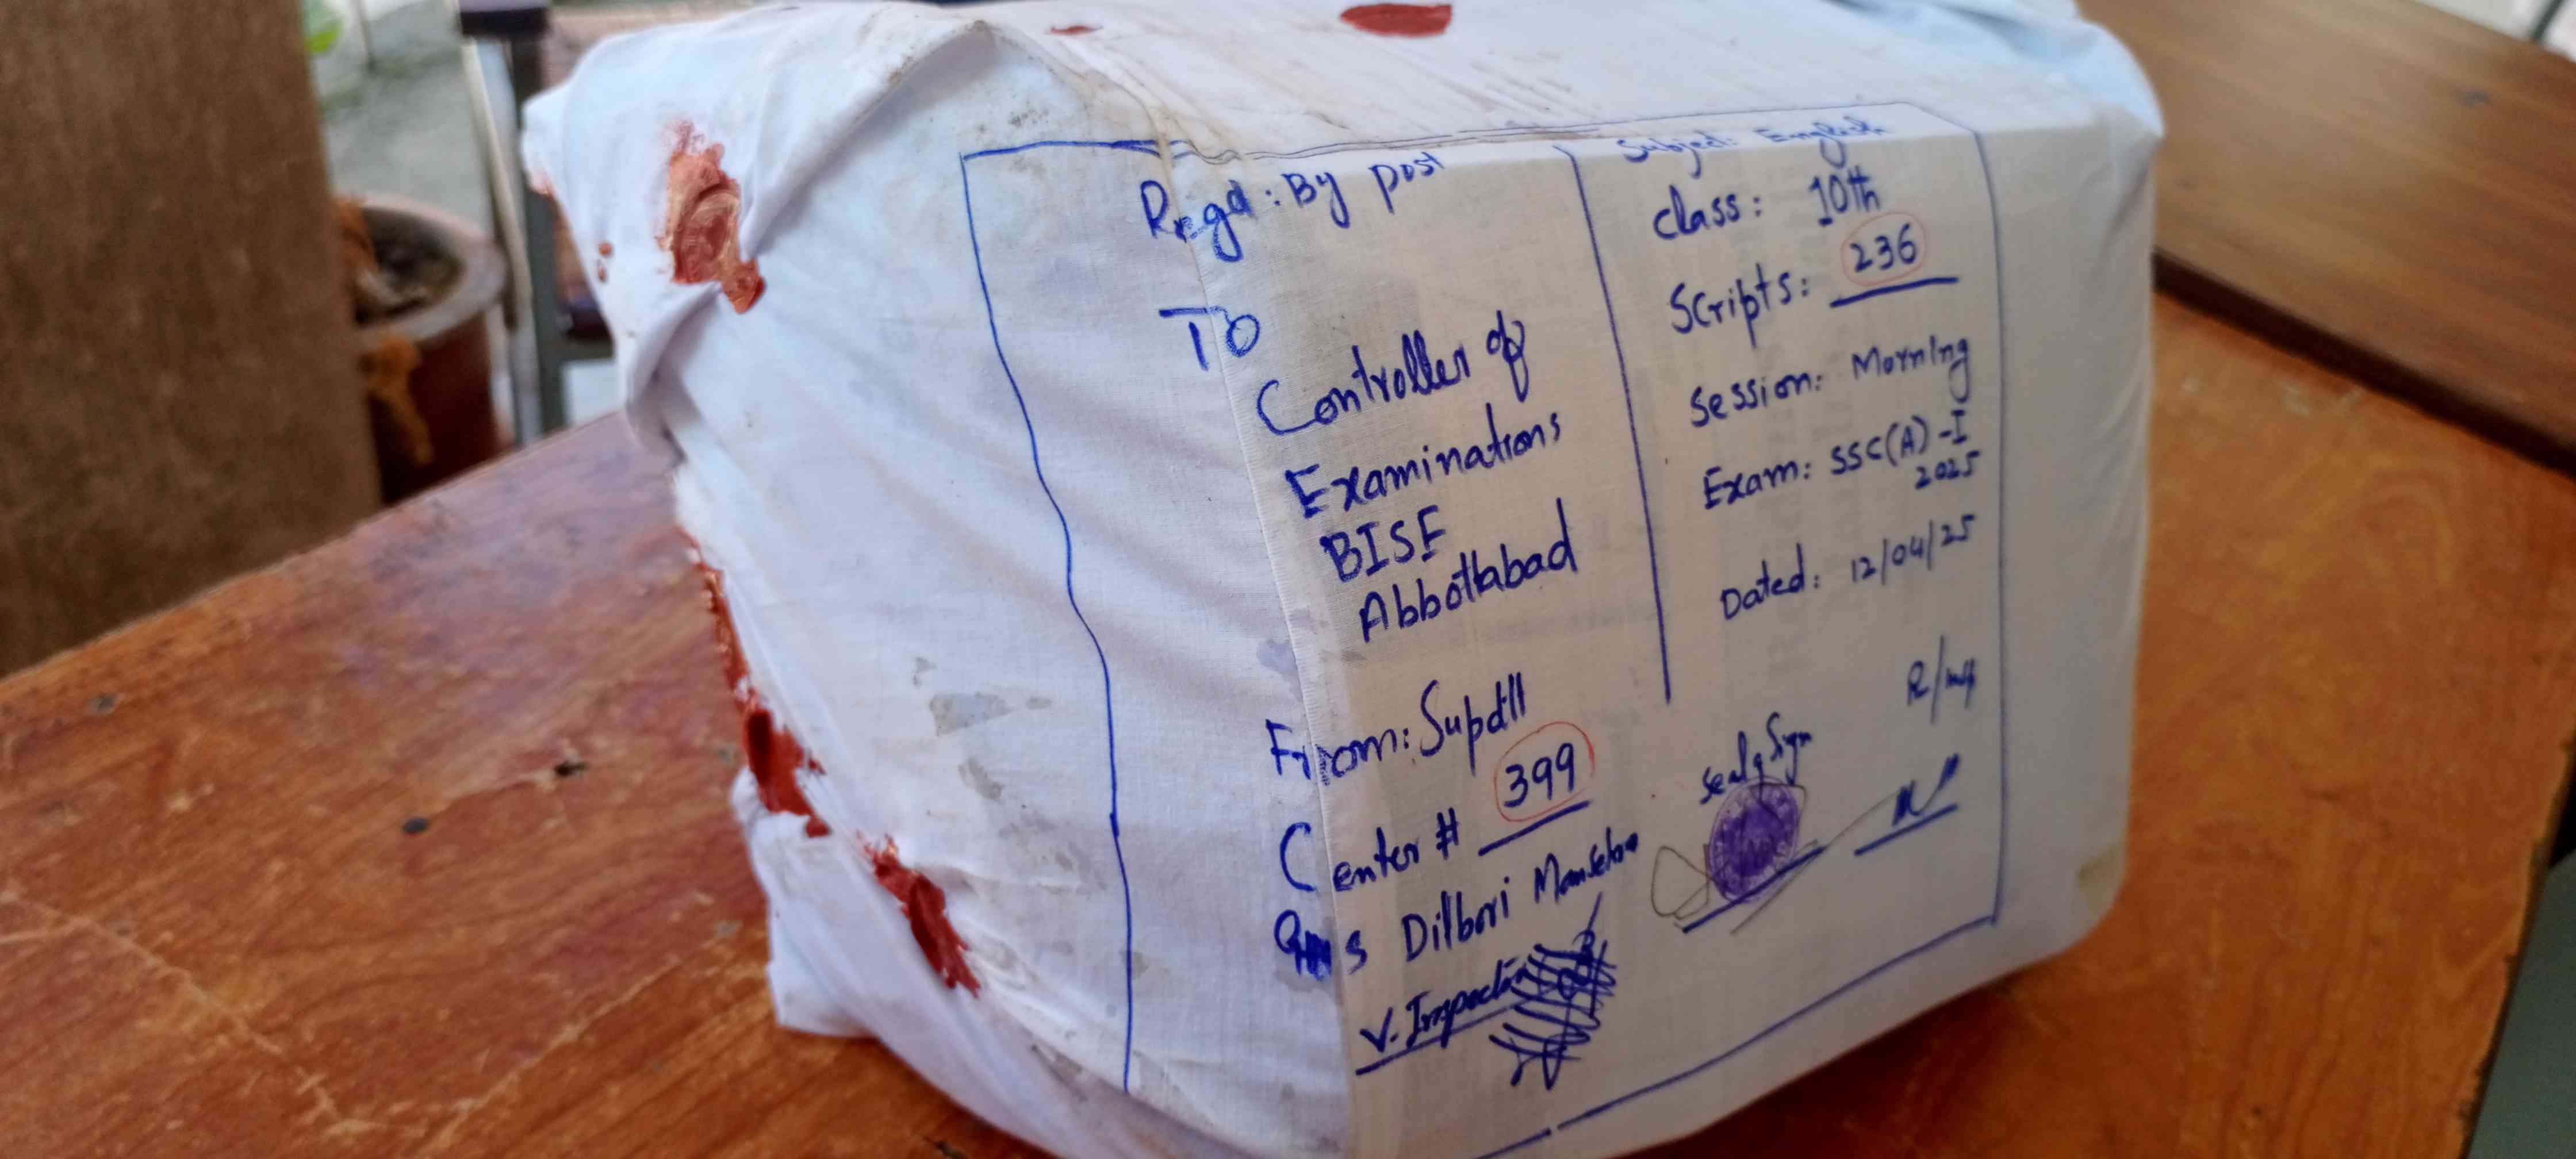 Regd: By post
TO
Controller of
Examinations
BISE
Abbottabad
From: Supdtt
Center # 399
GHS Dilbori Mansehra
V. Inspection
Subject: English
class: 10th
Scripts: 236
Session: Morning
Exam: SSC(A)-I
2025
Dated: 12/04/25
Seal & Sign